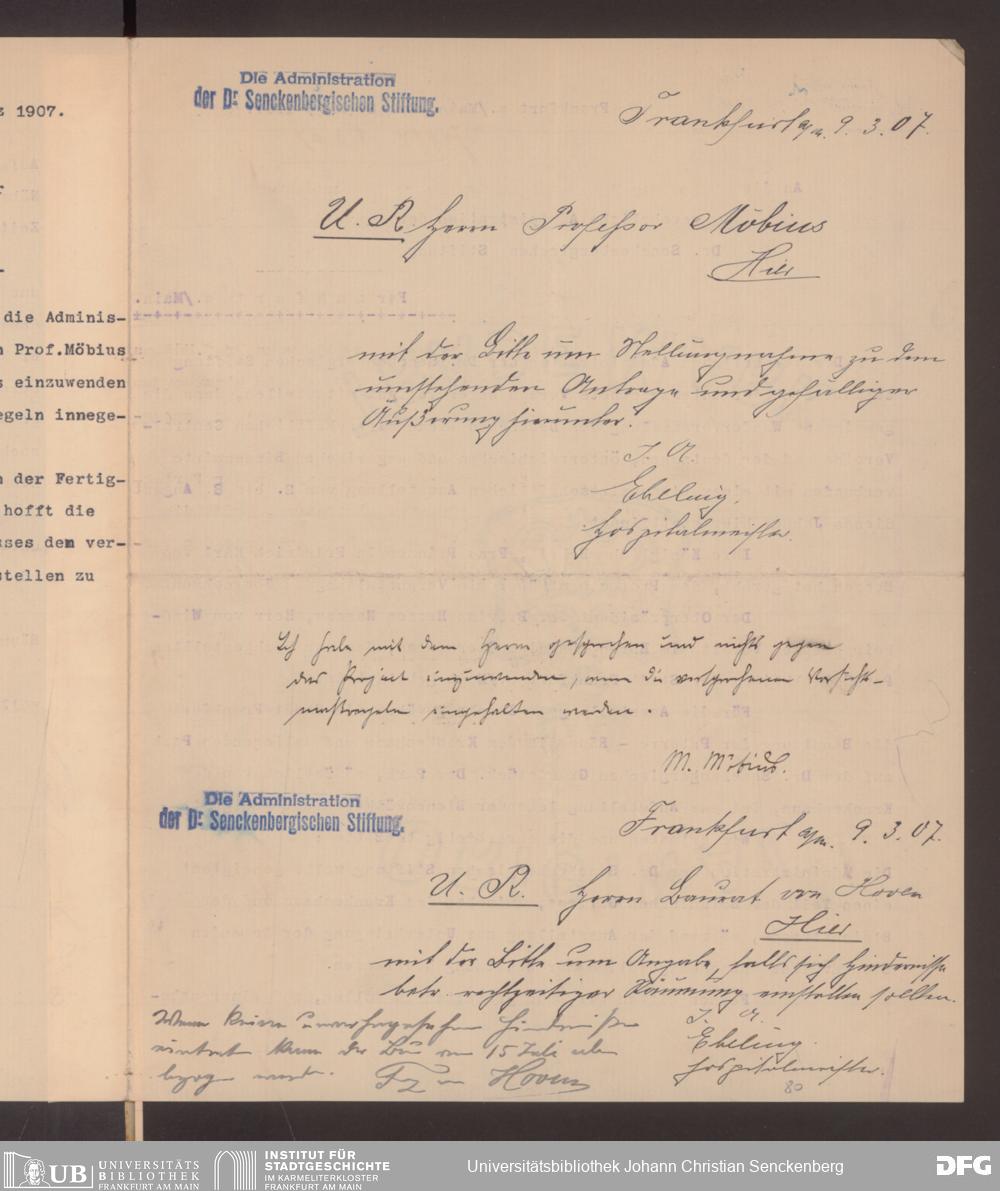 z 1907.
die Adminis-
n Prof.Möbius
s einzuwenden
egeln innege-
n der Fertig-
hofft die
uses den ver-
stellen zu
Die Administration
der Dr. Senckenbergischen Stiftung.
Frankfurt a/M. 9. 3. 07.
U. R. Herrn Professor Möbius
Hier
mit der Bitte um Stellungnahme zu dem
umstehenden Antrage und gefälliger
Äußerung hierunter.
I. A.
Ebeling.
Hospitalmeister.
Ich habe mit dem Herrn gesprochen und nichts gegen
das Project einzuwenden, wenn die versprochenen Vorsichts-
maßregeln eingehalten werden.
M. Möbius.
Die Administration
der Dr. Senckenbergischen Stiftung.
Frankfurt a/M. 9. 3. 07.
U. R. Herrn Baurat von Hoven
Hier
mit der Bitte um Angabe, falls sich Hindernisse
betr. rechtzeitiger Räumung einstellen sollten.
I. A.
Ebeling.
Hospitalmeister.
Wenn keine unvorhergesehenen Hindernisse
eintreten kann der Bau am 15 Juli
bezogen werden. Fz von Hoven
80
UB UNIVERSITÄTS
BIBLIOTHEK
FRANKFURT AM MAIN
INSTITUT FÜR
STADTGESCHICHTE
IM KARMELITERKLOSTER
FRANKFURT AM MAIN
Universitätsbibliothek Johann Christian Senckenberg
DFG